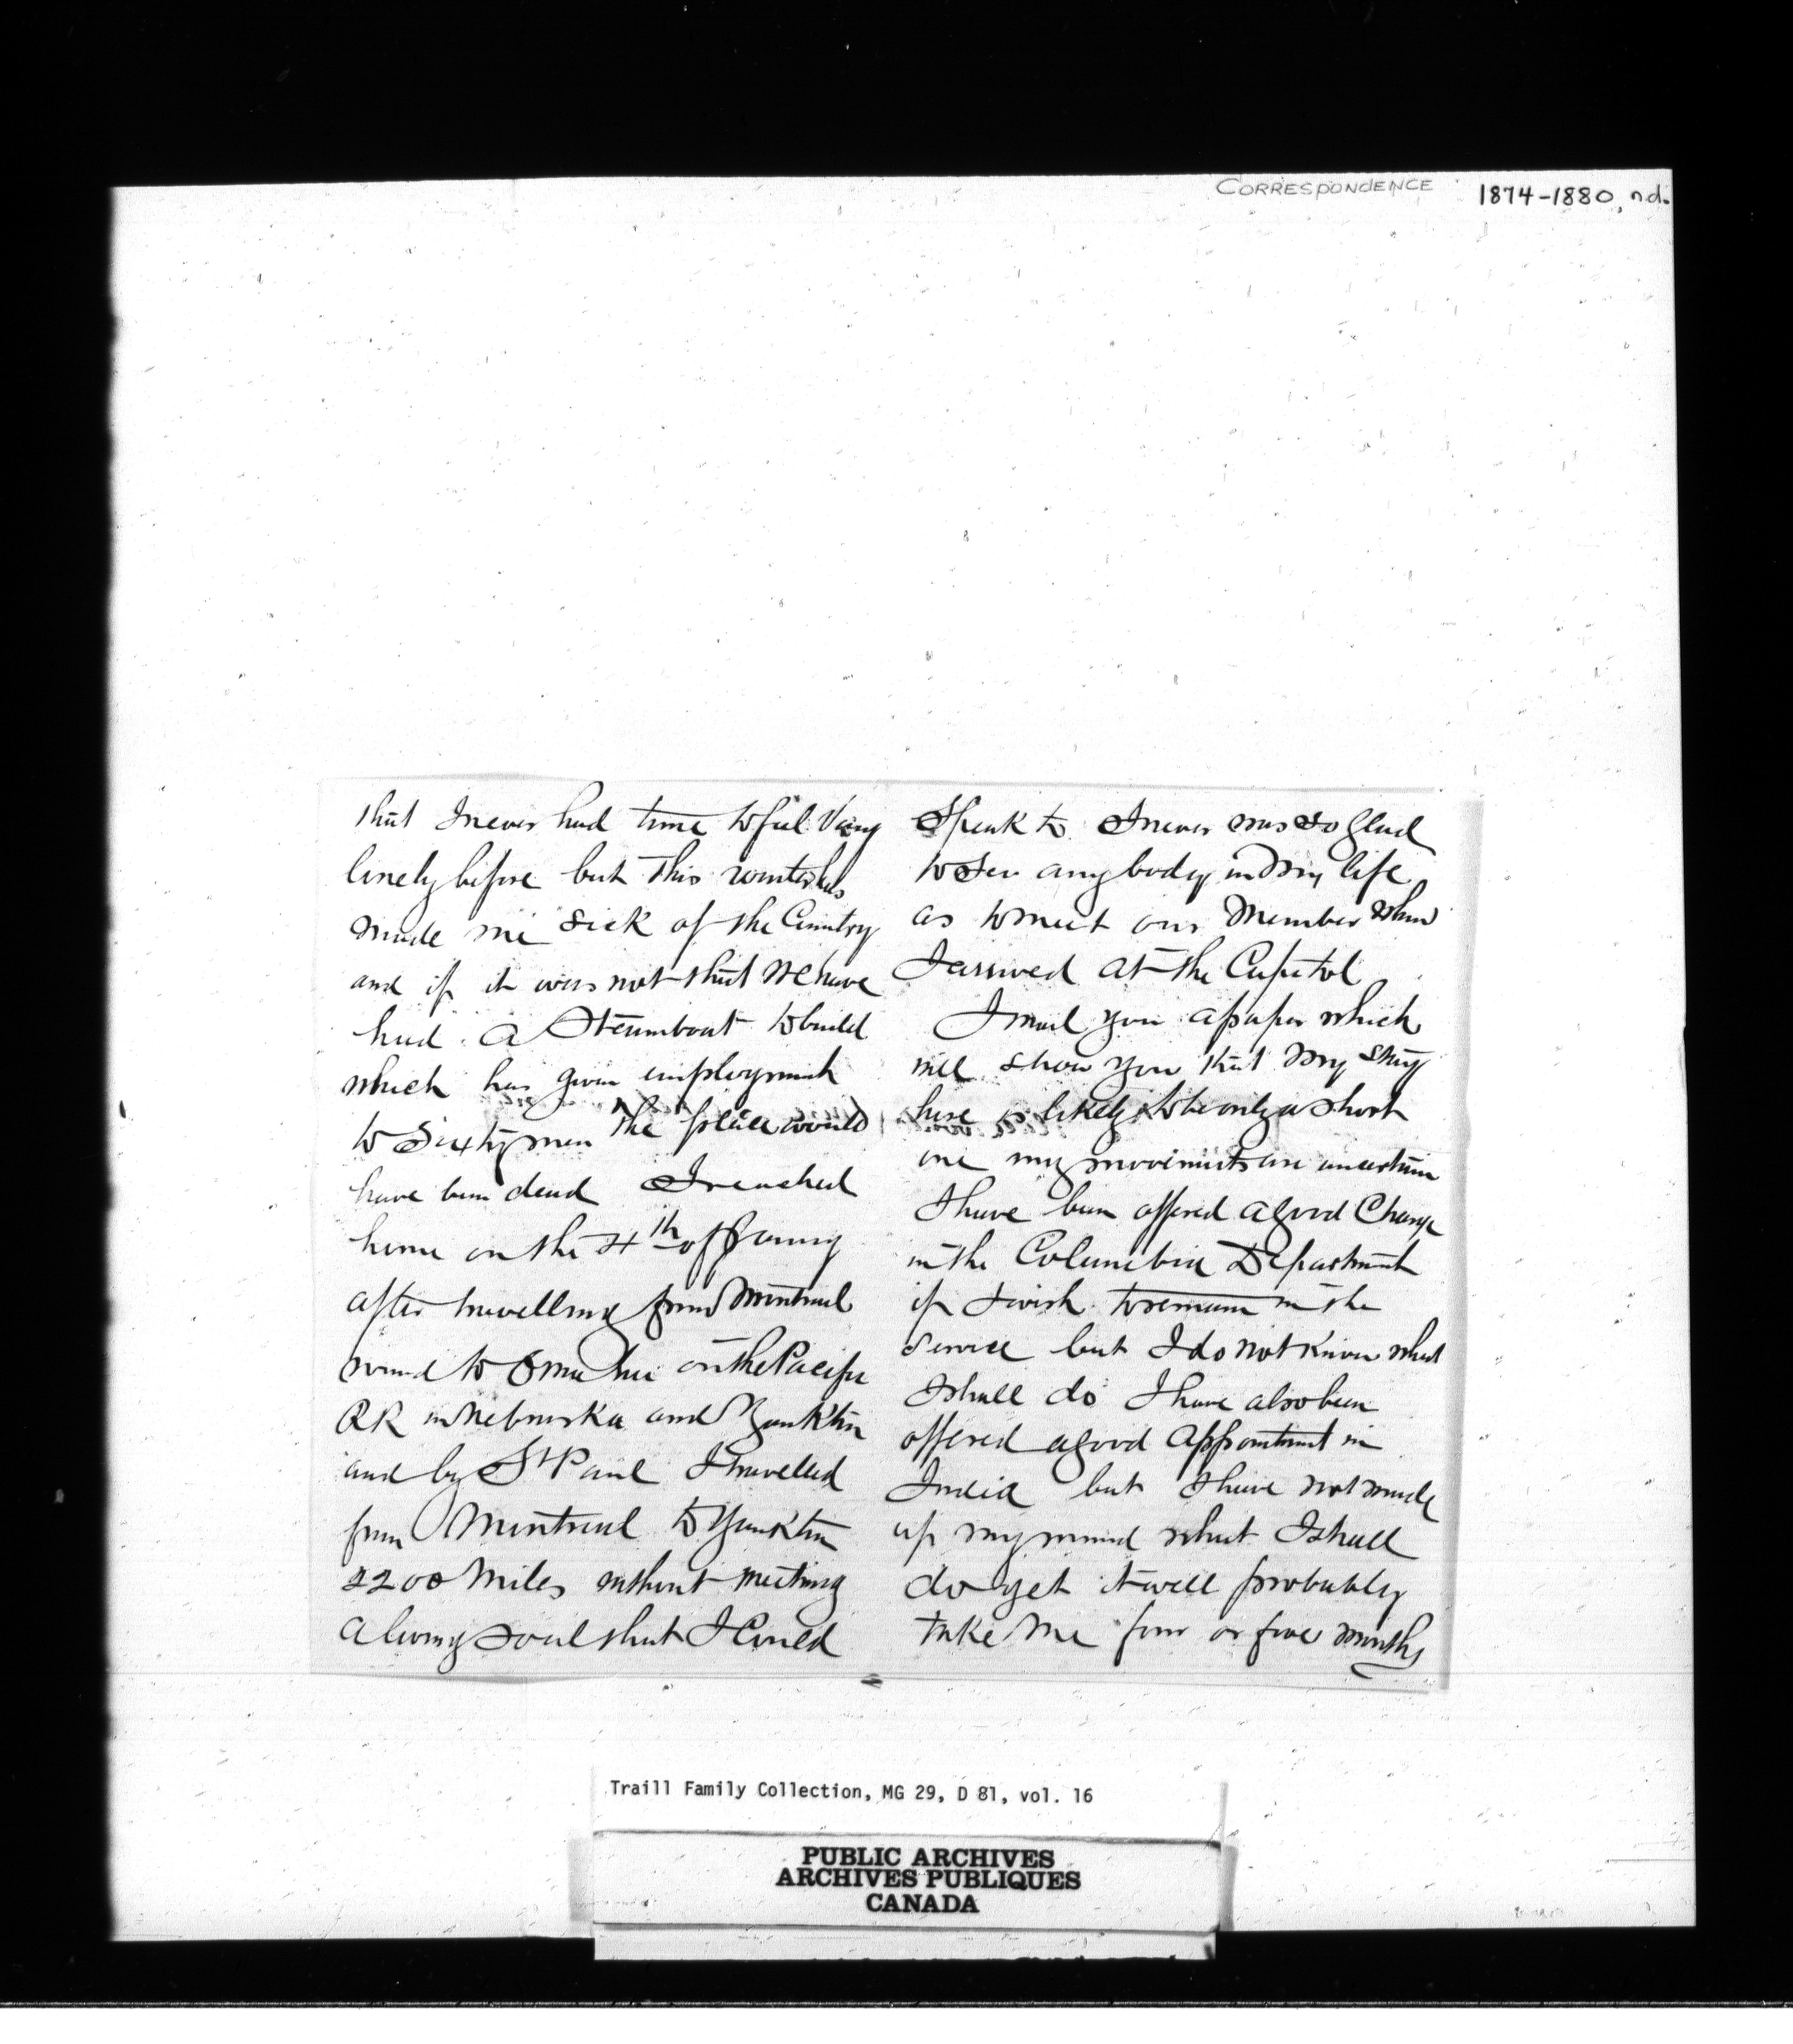 CORRESPONDENCE 1874-1880, n.d.
that I never had time to feel very
linely before but this winter has
made me sick of the Country
and if it was not that we have
had a Steamboat to build
which has given employment
to Sixty men the place would
have been dead I reached
home on the 4th of
after travelling from Montreal
round to Omaha on the Pacific
RR in Nebraska and Yankton
and by St Paul I travelled
from Montreal to Yankton
2200 Miles without meeting
a living soul that I Could
Speak to I never was so glad
to see any body in my life
as to meet our Member when
I arrived at the Capitol
I mail you a paper which
will show you that my stay
here is likely to be only a short
one my movements are uncertain
I have been offered a good Charge
in the Columbia Department
if I wish to remain in the
Service but I do not know what
I shall do I have also been
offered a good appointment in
India but I have not made
up my mind what I shall
do yet it will probably
take me four or five months
Traill Family Collection, MG 29, D 81, vol. 16
PUBLIC ARCHIVES
ARCHIVES PUBLIQUES
CANADA